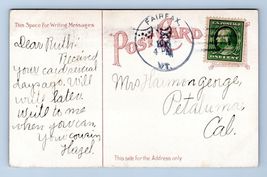 This Space for Writing Messages
POST CARD
FAIRFAX
VT.
ONE CENT
Dear Ruth:
Received
your card several
days ago. Will
write later
write to me
when you can
your cousin
Hazel
Mrs
Petaluma
Cal.
This side for the Address only